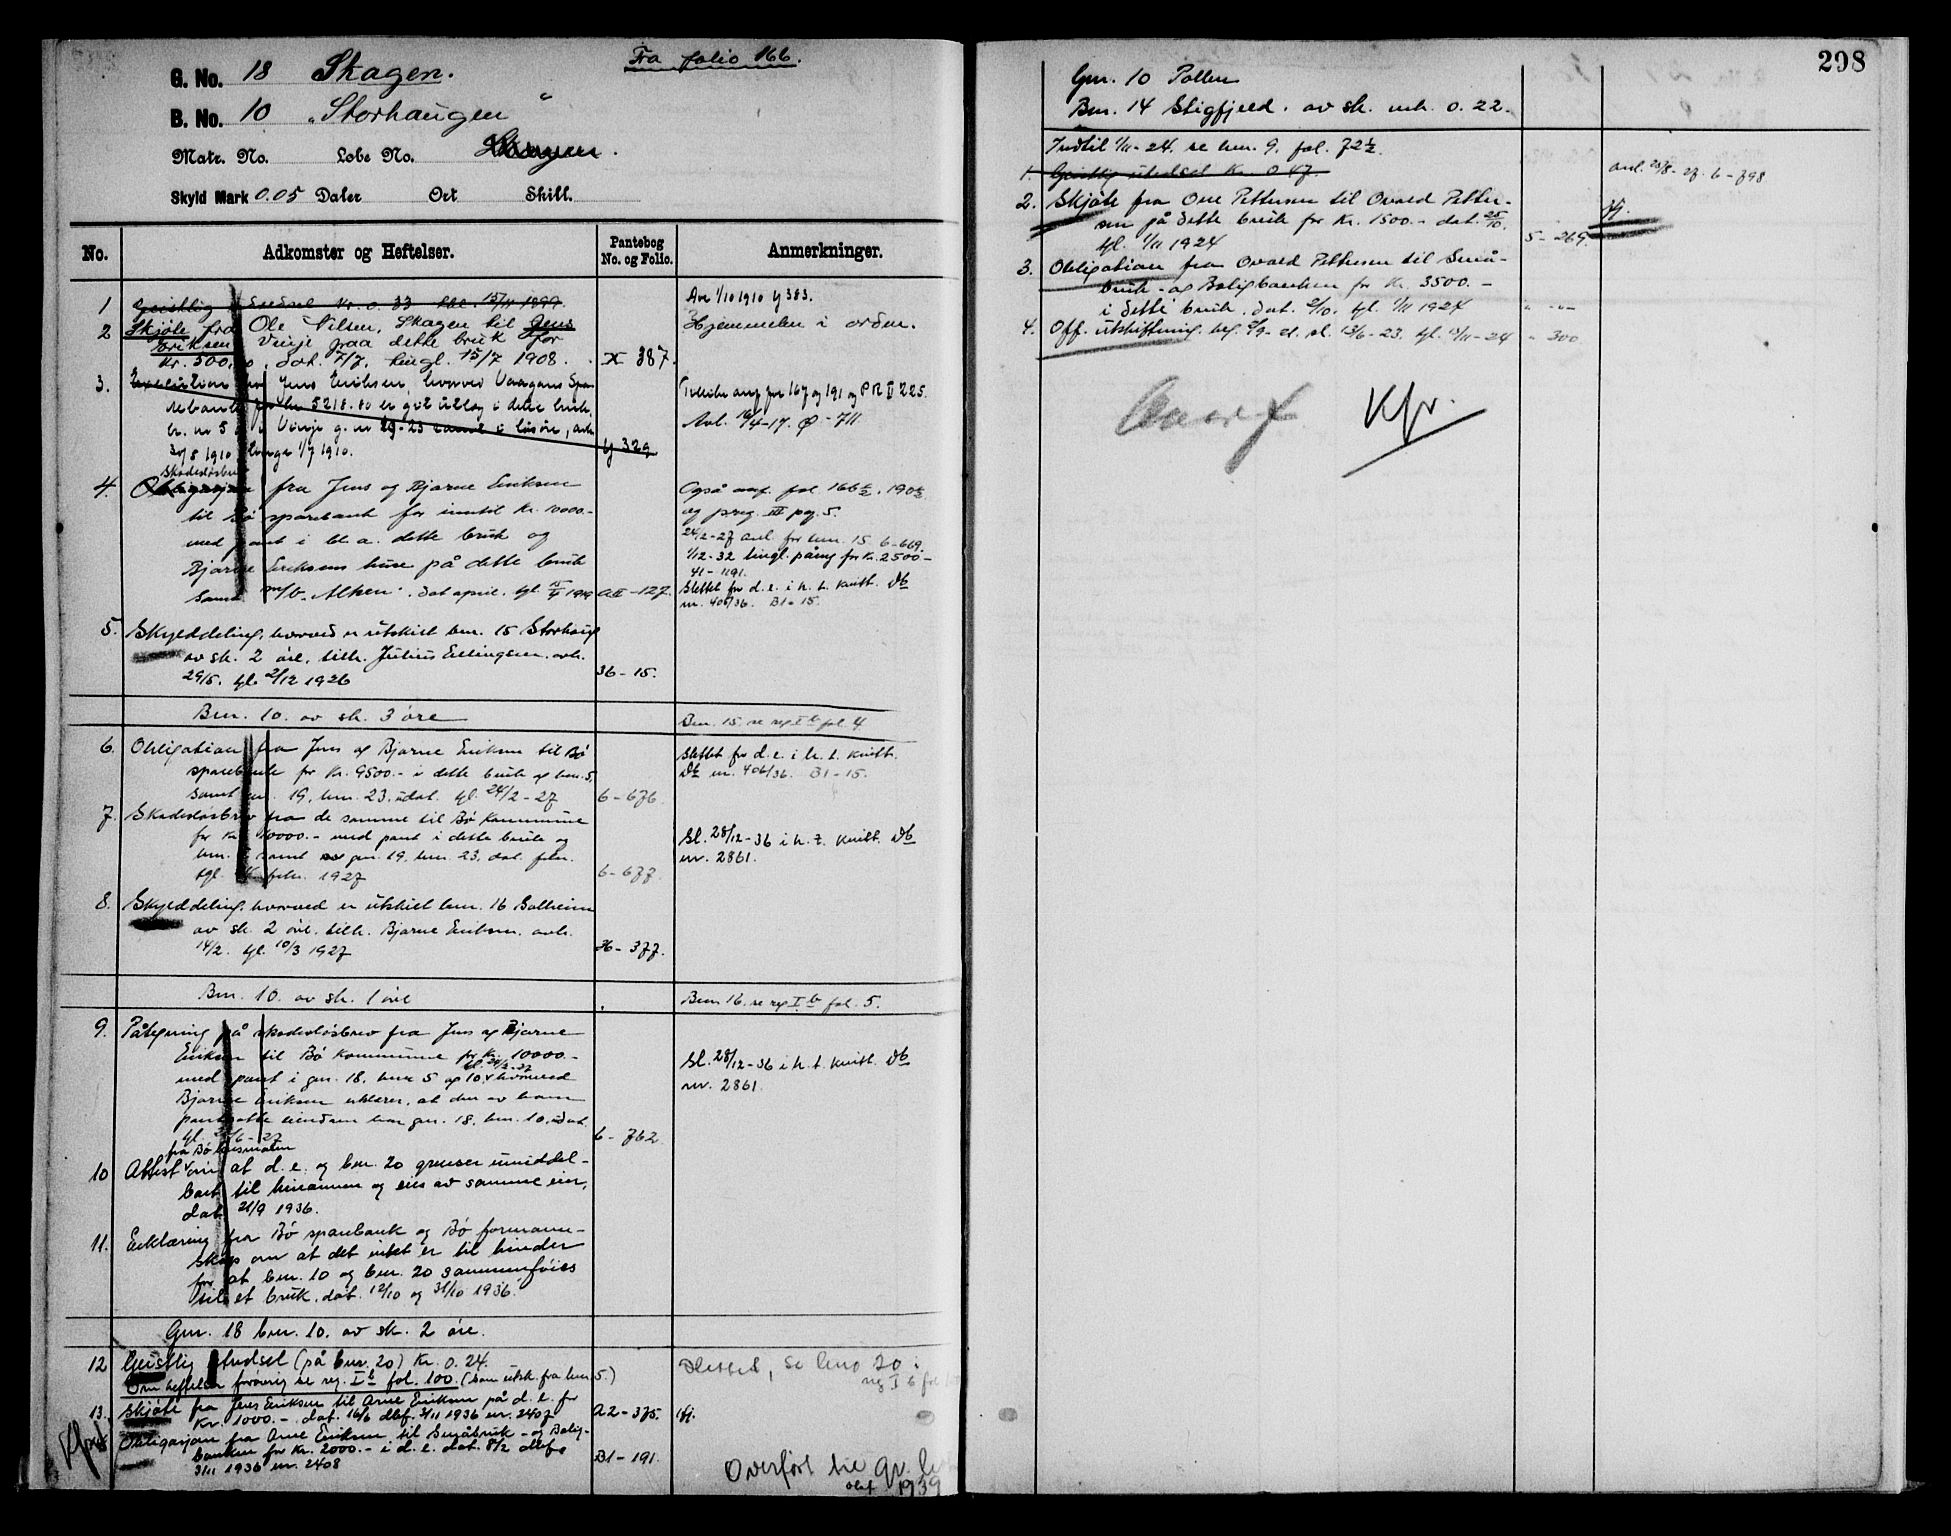 Fra folio 166.
G. No. 18 Skagen.
B. No. 10 „Storhaugen“
Matr. No. Løbe No.
Skyld Mark 0.05 Daler Ort Skill.
No. Adkomster og Heftelser. Pantebog No. og Folio. Anmerkninger.
1 Geistlig Indsel Kr. 0.33 15/11 1899. Avl 1/10 1910 Y 383.
2 Skjøte fra Ole Nilsen, Skagen til Jens Hjemmelen i orden.
Eriksen Vinje paa dette bruk for
Kr. 500,00, dat. 7/7, tingl. 15/7 1908. X 387.
3. Execution hos Jens Eriksen, hvorved Vaagans Spa-
rebank for kr 5218.80 er git utlæg i dette bruk,
b. nr 5 Vinje g. nr 19-23 samt i løsøre, avh
30/8 1910 tingl. 1/7 1910. Y 329
Tillike anf fol 167 og 191 og P R II 225.
Avl. 16/4-17. Ø - 711
Skadesløsbrev
4. Obligasjon fra Jens og Bjarne Eriksen
til Bø sparebank for inntil Kr. 10000.-
med pant i bl. a. dette bruk og
Bjarne Eriksens huse på dette bruk
samt m/b „Alken“. dat april. tgl 1919 A II - 127.
Også anf. fol. 166 1/2, 190 1/2
og preg. III pag. 5.
24/2-27 avl. for bnr. 15 6-669.
1/12-32 tingl. påteg for Kr. 2500-
41-1191.
Slettet for d. e. i h. t. kvitt. Db
nr. 406/36. B1-15.
5. Skylddeling, hvorved er utskilt bnr. 15 Storhaug
av sk. 2 øre, tilh. Julius Ellingsen. avh.
29/5. tgl. 2/12 1926 36-15.
Bnr. 10. av sk. 3 øre Bnr. 15. se reg I b fol. 4
6. Obligation fra Jens og Bjarne Eriksen til Bø
sparebank for Kr. 9500.- i dette bruk og bnr. 5,
samt gnr. 19, bnr. 23. udat. tgl. 24/2-27 6-676.
Slettet for d. e. i h. t. kvitt.
Db nr. 406/36. B1-15.
7. Skadesløsbrev fra de samme til Bø kommune
for Kr. 10000.- med pant i dette bruk og
bnr. 5 samt gnr. 19, bnr. 23. dat. febr.
tgl. febr. 1927 6-677.
Sl. 28/12-36 i h. t. kvitt. Db
nr. 2861.
8. Skylddeling, hvorved er utskilt bnr. 16 Solheim
av sk. 2 øre. tilh. Bjarne Eriksen. avh.
14/2. tgl. 10/3 1927 36-377.
Bnr. 10. av sk. 1 øre Bnr 16. se reg I b fol. 5.
9. Påtegning på skadesløsbrev fra Jens og Bjarne
Eriksen til Bø kommune for Kr. 10000.-
tgl. 24/2-27
med pant i gnr. 18, bnr 5 og 10, hvorved
Bjarne Eriksen erklærer, at den av ham
pantsatte eiendom har gnr. 18, bnr. 10, udat.
tgl. /6-27 6-762.
Sl. 28/12-36 i h. t. kvitt. Db
nr. 2861.
fra Bø
10 Attest om at d. e. og bnr. 20 grenser umiddel-
bart til hinannen og eies av samme eier,
dat 21/9 1936.
11. Erklæring fra Bø sparebank og Bø formann-
skap om at det intet er til hinder
for at bnr. 10 og bnr. 20 sammenføies
til et bruk. dat. 12/10 og 31/10 1936.
Gnr. 18 bnr. 10. av sk. 2 øre.
12 Geistlig Indsel (på bnr. 20) Kr. 0.24. Slettet, se bno 20 i
Om heftelser forøvrig se reg. I b fol. 100. (som utsk. fra bnr 5.) reg I b fol
13. Skjøte fra Jens Eriksen til Arne Eriksen på d. e. for
Kr. 1000.- dat. 16/6 dbf. 3/11 1936 nr. 2407 A2-375. Hj.
Obligasjon fra Arne Eriksen til Småbruk- og Bolig-
banken for Kr. 2000.- i d. e. dat. 8/2 dbf.
3/11 1936 nr. 2408 B1-191.
Overført til gr.
1939
298
Gnr. 10 Pollen
Bnr. 14 Stigfjeld. av sk. mk. 0.22.
Indtil 1/11-24. se bnr. 9. fol. 72 1/2.
1. Geistlig utedsel Kr. 0.47. avl. 25/8-27. 6-798
2. Skjøte fra One Pettersen til Ovald Petter-
sen på dette bruk for Kr. 1500.- dat. 25/10.
tgl. 1/11 1924 5-269. Hj.
3. Obligation fra Ovald Pettersen til Små-
bruk- og Boligbanken for Kr. 3500.-
i dette bruk. dat. 2/10. tgl. 1/11 1924 " "-
4. Off. utskiftning. beg. /9- sl. 13/6-23. tgl. /11-24 - 300
Kfr.